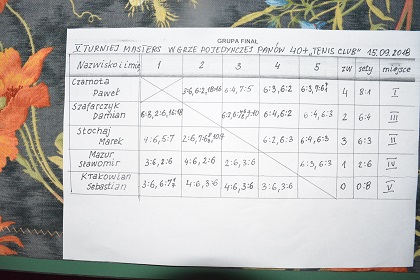 GRUPA FINAŁ
V TURNIEJ MASTERS W GRZE POJEDYNCZEJ PANÓW 40+ „TENIS CLUB" 15.09.2018
Nazwisko i imię 1 2 3 4 5 zw sety miejsce
Czarnota Paweł 3:6, 6:2, 6:4, 7:5 6:3, 6:2 6:3, 7:6 4 8:1 I
Szafarczyk Damian 6:3, 2:6, 6:4, 6:2 6:4, 6:3 2 6:4 III
Stochaj Marek 4:6, 5:7 2:6, 7:6 6:2, 6:3 6:4, 6:3 3 6:3 II
Mazur Sławomir 3:6, 2:6 4:6, 2:6 2:6, 3:6 6:3, 6:3 1 2:6 IV
Krakowian Sebastian 3:6, 6:7 4:6, 3:6 4:6, 3:6 3:6, 3:6 0 0:8 V